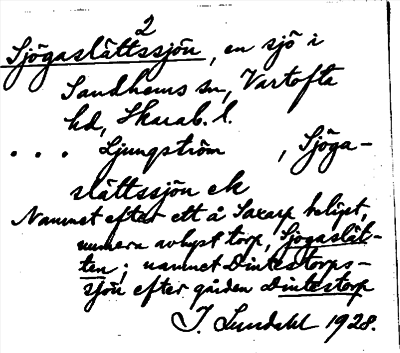 2
Sjögaslättssjön, en sjö i
Sandhems sn, Vartofta
hd, Skarab. l.
. . . Ljungström , Sjöga-
slättssjön ek
Namnet efter ett å Saxarp beläget,
numera avhyst torp, Sjögaslät-
ten; namnet Dintestorps-
sjön efter gården Dintestorp
J. Lundahl 1928.